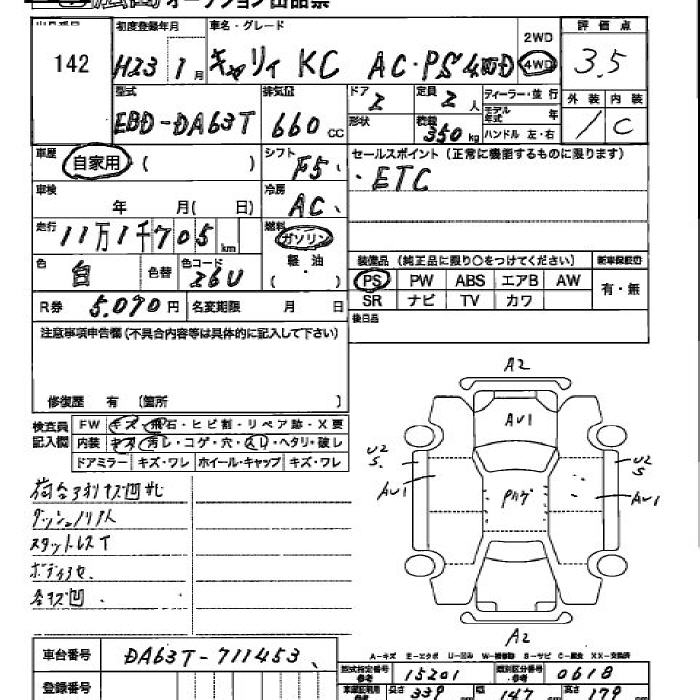 オークション出品票
142
初度登録年月 車名・グレード 2WD 評価点
H23 1月 キャリィ KC AC・PS 4WD 4WD 3.5
型式 排気量 ドア 定員 ディーラー・並行 外装 内装
EBD-DA63T 660cc 2 2人 モデル年式 年 / C
形状 積載 350kg ハンドル 左・右
車歴 自家用 ( ) シフト F5 セールスポイント (正常に機能するものに限ります)
・ETC
車検 年 月( 日) 冷房 AC
走行 11万1千705km 燃料 ガソリン
軽・油
( )
色 白 色替 色コード 26U
装備品 (純正品に限り○をつけてください) 新車保証書
PS PW ABS エアB AW 有・無
SR ナビ TV カワ
R券 5,090円 名変期限 月 日
後日品
注意事項申告欄(不具合内容等は具体的に記入して下さい)
修復歴 有 (箇所 )
検査員記入欄 FW キズ・飛石・ヒビ割・リペア跡・X要
内装 キズ・汚レ・コゲ・穴・スレ・ヘタリ・破レ
ドアミラー キズ・ワレ ホイール・キャップ キズ・ワレ
スタットレスT
A2
AV1
U2
S
AV1
U2
S
AV1
A2
A-キズ E-エクボ U-凹み W-補修跡 S-サビ C-腐食 XX-交換済
車台番号 DA63T-711453
型式指定番号 参考 15201 類別区分番号 参考 0618
登録番号
長さ 339 幅 147 高さ 179